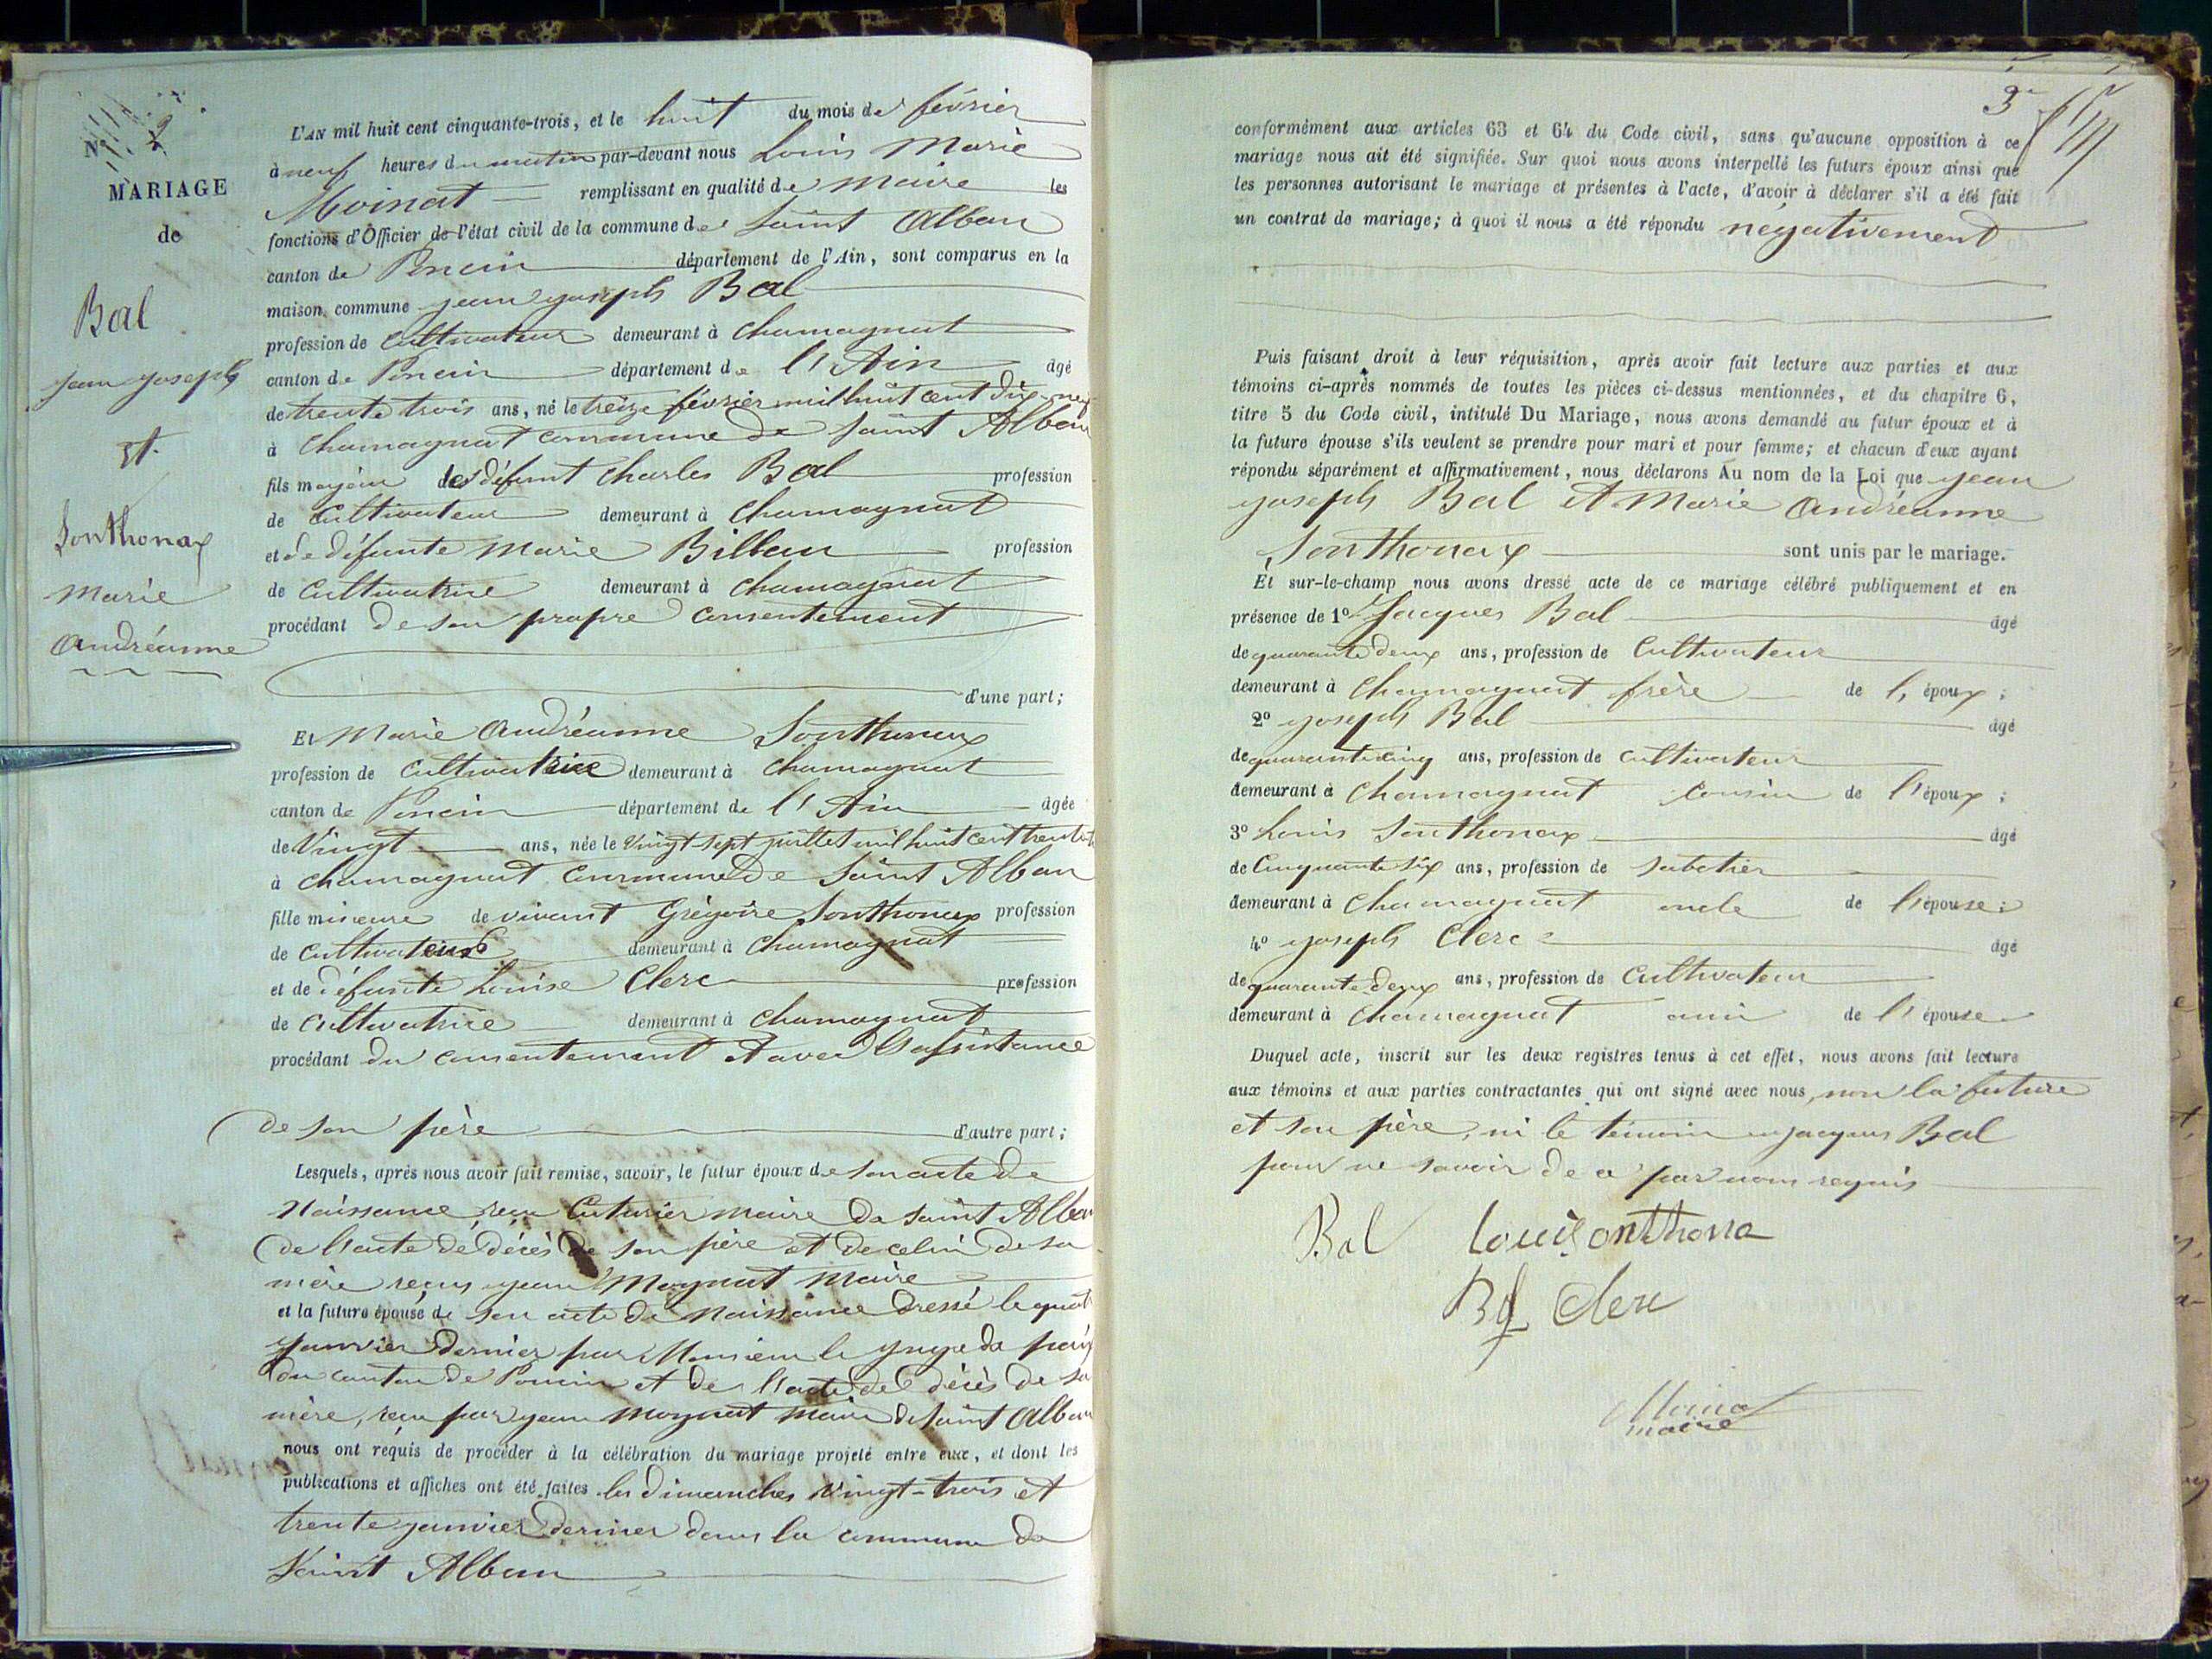 N° 2
MARIAGE
de
Bal
jean joseph
et
Sonthonax
marie
andréanne
L'AN mil huit cent cinquante-trois, et le huit du mois de février
à neuf heures du matin par-devant nous Louis Marie
Moinat remplissant en qualité de maire les
fonctions d'Officier de l'état civil de la commune de Saint Alban
canton de Poncin département de l'Ain, sont comparus en la
maison commune jean joseph Bal
profession de Cultivateur demeurant à Chamagnat
canton de Poncin département de l'Ain âgé
de trente trois ans, né le treize février mil huit cent dix-neuf
à Chamagnat commune de Saint Alban
fils majeur de défunt Charles Bal profession
de Cultivateur demeurant à Chamagnat
et de défunte Marie Billau profession
de Cultivatrice demeurant à Chamagnat
procédant de son propre consentement
d'une part;
Et Marie Andréanne Sonthonax
profession de Cultivatrice demeurant à Chamagnat
canton de Poncin département de l'Ain âgée
de Vingt ans, née le Vingt-sept juillet mil huit cent trente
à Chamagnat Commune de Saint Alban
fille mineure de vivant Grégoire Sonthonax profession
de Cultivateur demeurant à Chamagnat
et de défunte Louise Clerc profession
de Cultivatrice demeurant à Chamagnat
procédant du consentement et avec l'assistance
de son père d'autre part;
Lesquels, après nous avoir fait remise, savoir, le futur époux de son acte de
Naissance reçu Cuturier maire de Saint Alban
de l'acte de décès de son père et de celui de sa
mère reçus jean Moynat Maire
et la future épouse de son acte de Naissance dressé le quatre
janvier dernier par Monsieur le juge de paix
du canton de Poncin et de l'acte de décès de sa
mère, reçu par jean Moynat maire de Saint Alban
nous ont requis de procéder à la célébration du mariage projeté entre eux, et dont les
publications et affiches ont été faites les dimanches Vingt-trois et
trente janvier dernier dans la commune de
Saint Alban
3
conformément aux articles 63 et 64 du Code civil, sans qu'aucune opposition à ce
mariage nous ait été signifiée. Sur quoi nous avons interpellé les futurs époux ainsi que
les personnes autorisant le mariage et présentes à l'acte, d'avoir à déclarer s'il a été fait
un contrat de mariage; à quoi il nous a été répondu négativement
Puis faisant droit à leur réquisition, après avoir fait lecture aux parties et aux
témoins ci-après nommés de toutes les pièces ci-dessus mentionnées, et du chapitre 6,
titre 5 du Code civil, intitulé Du Mariage, nous avons demandé au futur époux et à
la future épouse s'ils veulent se prendre pour mari et pour femme; et chacun d'eux ayant
répondu séparément et affirmativement, nous déclarons Au nom de la Loi que jean
joseph Bal et Marie Andréanne
Sonthonax sont unis par le mariage.
Et sur-le-champ nous avons dressé acte de ce mariage célébré publiquement et en
présence de 1° Jacques Bal âgé
de quarante deux ans, profession de Cultivateur
demeurant à Chamagnat frère de l'époux;
2° joseph Bal âgé
de quarante cinq ans, profession de Cultivateur
demeurant à Chamagnat Cousin de l'époux;
3° Louis Sonthonax âgé
de Cinquante six ans, profession de sabotier
demeurant à Chamagnat oncle de l'épouse;
4° joseph Clerc âgé
de quarante deux ans, profession de Cultivateur
demeurant à Chamagnat ami de l'épouse
Duquel acte, inscrit sur les deux registres tenus à cet effet, nous avons fait lecture
aux témoins et aux parties contractantes qui ont signé avec nous, non la future
et son père, ni le témoin jacques Bal
pour ne savoir de ce par nous requis
Bal Louis onthona
Clerc
Moinat
maire